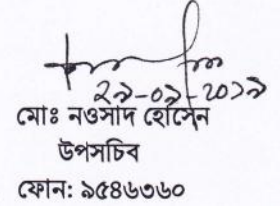 ২৯-০৯-২০১৯
মোঃ নওসাদ হোসেন
উপসচিব
ফোন: ৯৫৪৬৩৬০